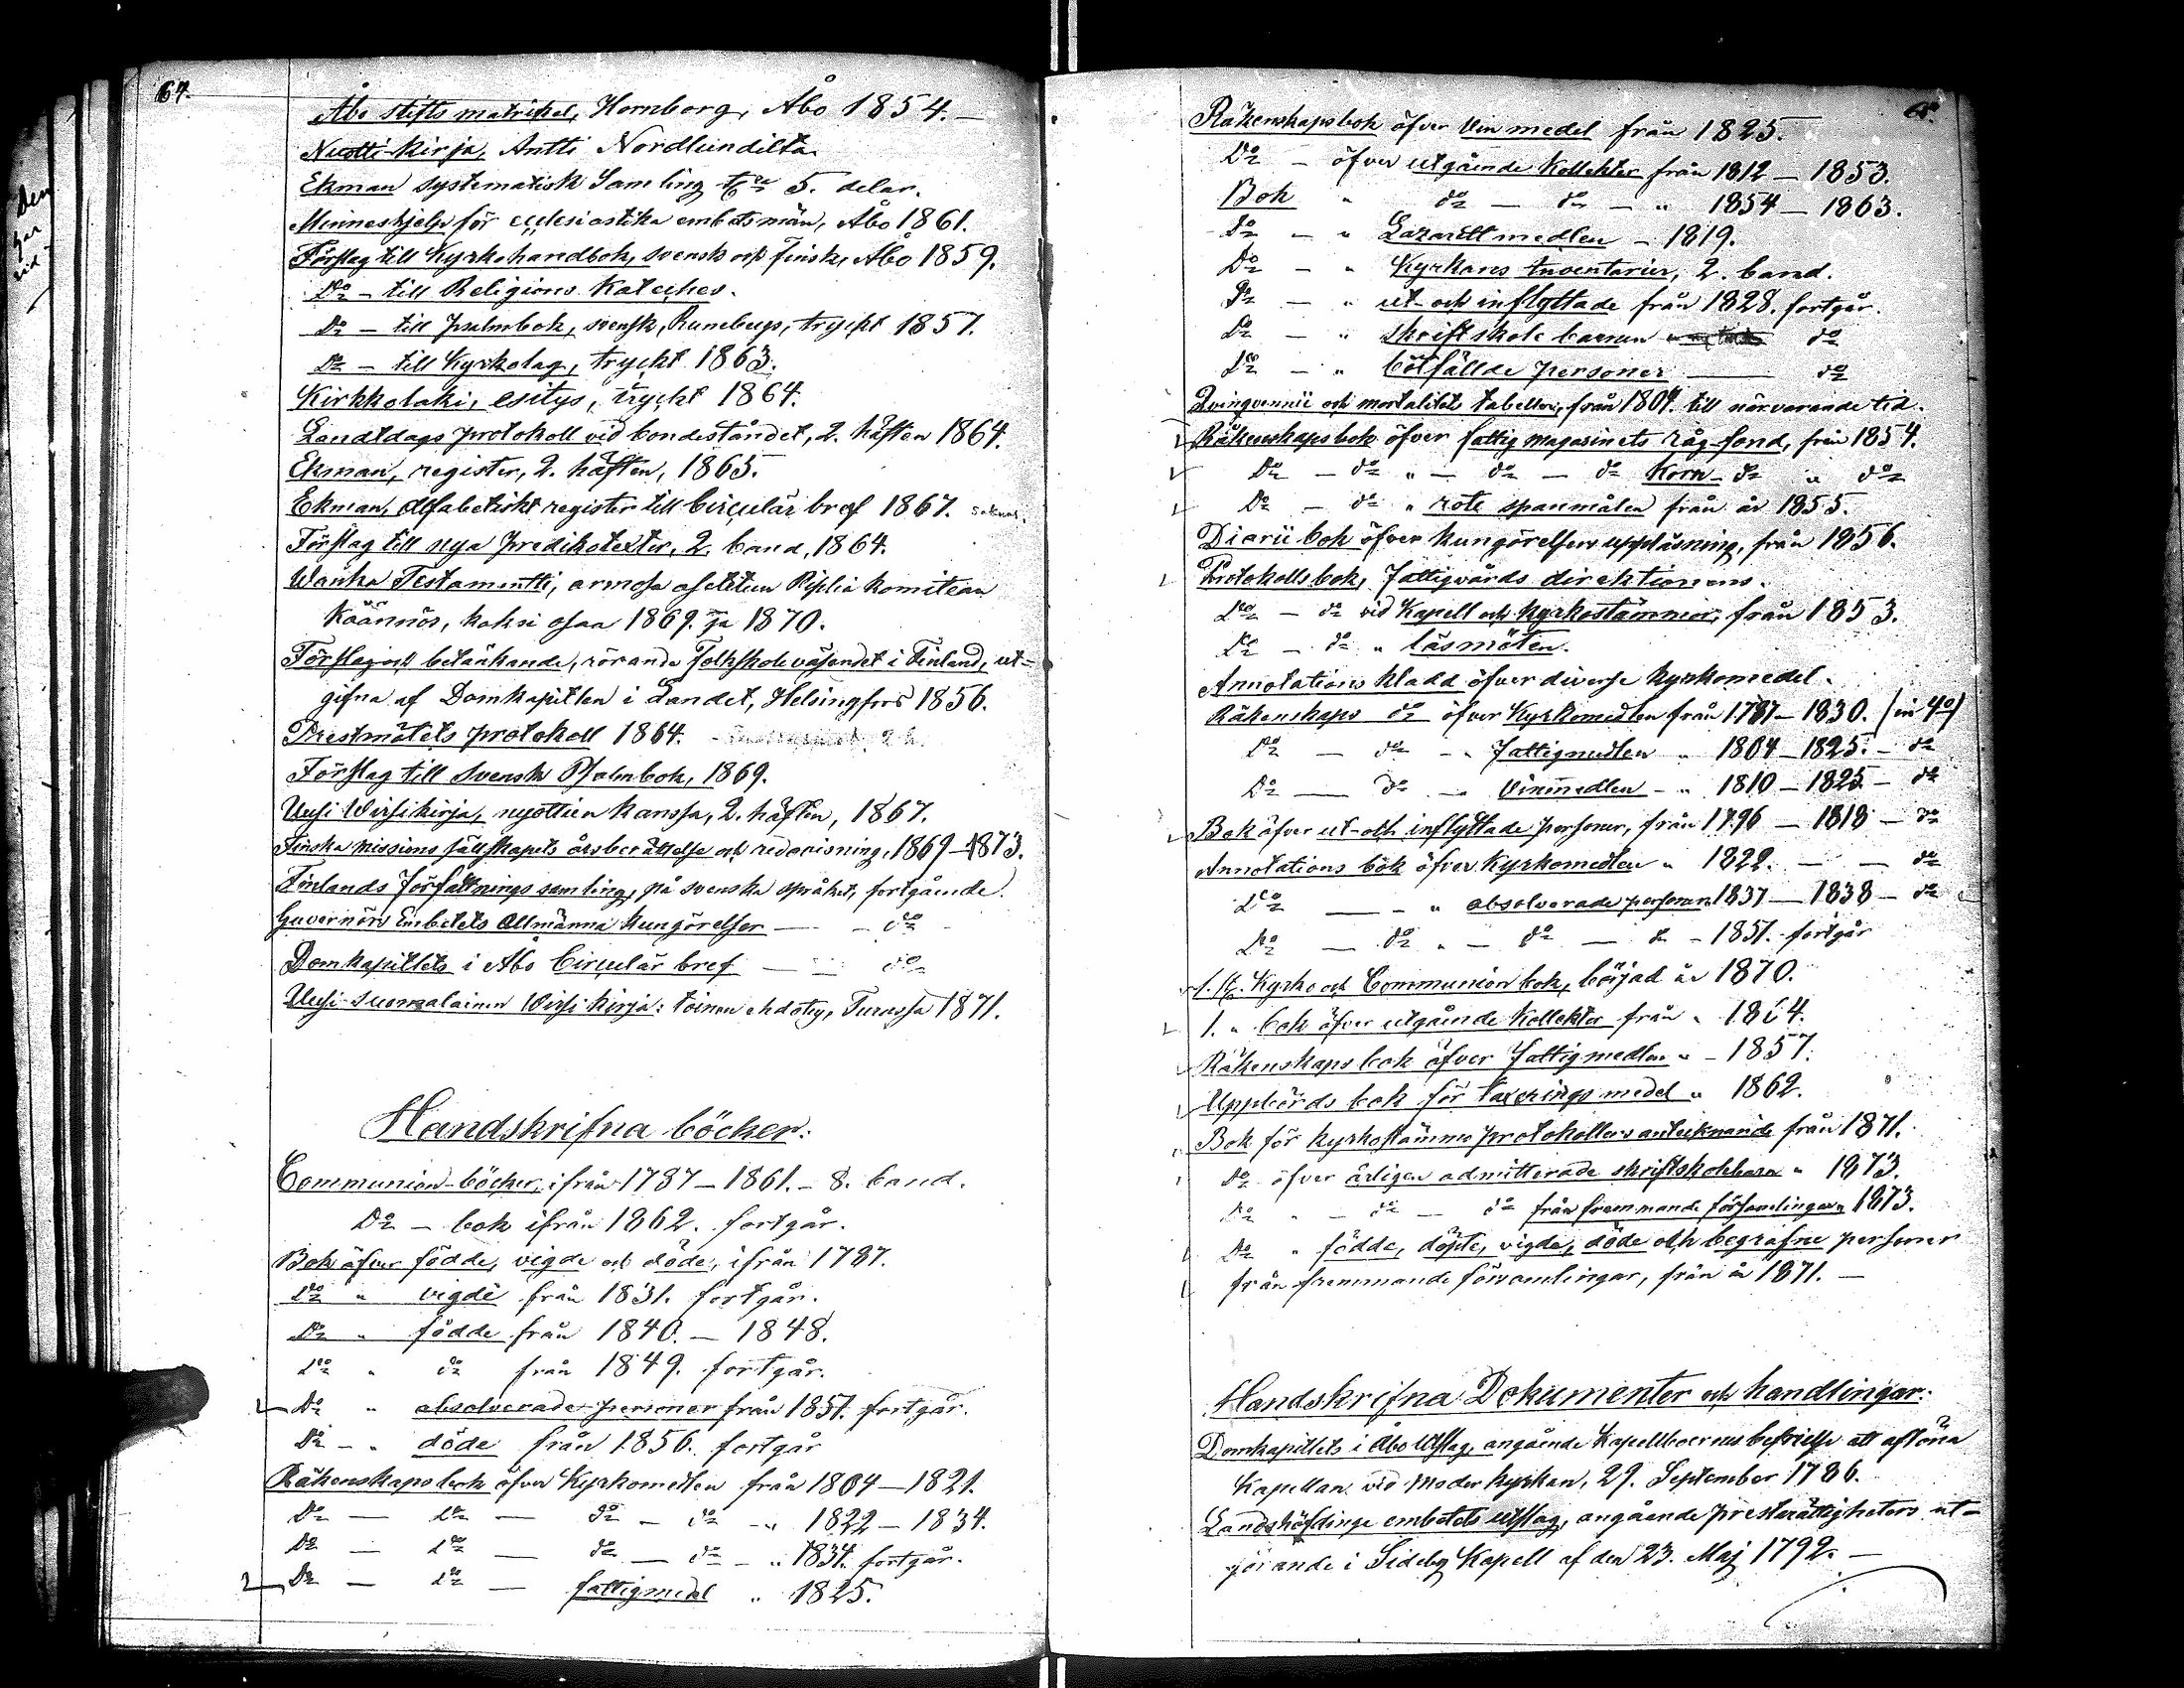 64.
Åbo stifts matrikel, Hornborg, Åbo 1854. —
Nuotti-kirja, Antti Nordlundilta.
Ekman systematisk Samling 5. delar.
Minneshjelp för ecclesiastika embetsmän, Åbo 1861.
Förslag till Kyrkohandbok, svensk och finsk, Åbo 1859.
Do — till Religions Kateches.
Do — till psalmbok, svensk, Runebergs, tryckt 1857.
Do — till Kyrkolag, tryckt 1863.
Kirkkolaki, esitys, tryckt 1864.
Landtdags protokoll vid bondeståndet, 2. häften 1864.
Ekman, register, 2. häften, 1865.
Ekman, Alfabetiskt register till Circulär bref 1867. saknas.
Förslag till nya predikotexter, 2. band, 1864.
Wanha Testamentti, armossa asetetun Piplia komitean
Käännös, kaksi osaa 1869. ja 1870.
Förslag och betänkande, rörande Folkskoleväsendet i Finland, ut-
gifna af Domkapitlen i Landet, Helsingfors 1856.
Prestmötets protokoll 1864.
Förslag till Svensk Psalmbok, 1869.
Uusi Wirsikirja, nuottien kanssa, 2. häften, 1867.
Finska missions sällskapets årsberättelse och redovisning, 1869—1873.
Finlands Författnings samling, på svenska språket, fortgående.
Guvernörs Embetets Allmänna Kungörelser — — do
Domkapitlets i Åbo Circulär bref — — do
Uusi Suomalainen Wirsi kirja: toinen ehdotus, Turussa 1871.
Handskrifna böcker.
Communion-böcker, ifrån 1787—1861. — 8. band.
Do — bok ifrån 1862. fortgår.
Bok öfver födde, vigde och döde, ifrån 1787.
Do " vigde från 1831. fortgår.
Do " födde från 1840. — 1848.
Do " do från 1849. fortgår.
Do " absolverade personer från 1857. fortgår.
Do — " döde från 1856. fortgår
Räkenskapsbok öfver Kyrkomedlen från 1804—1821.
Do — Do — do — do — " 1822—1834.
Do — Do — do — do — " 1834. fortgår.
Do — Do — fattigmedel " 1825.
65.
Räkenskapsbok öfver Vin medel från 1825.
Do — öfver utgående Kollekter från 1812—1853.
Bok " do — do — " 1854—1863.
Do — " Lazarett medlen — 1819.
Do — " Kyrkans Inventarier, 2. band.
Do — " ut- och inflyttade från 1828. fortgår.
Do — " skriftskole barnen do
Do — " bötfällde personer — do
Quinquennii och mortalitets tabeller, från 1804. till närvarande tid.
Räkenskapsbok öfver fattig magasinets råg-fond, från 1854.
Do — do " — do — do Korn- do " do
Do — do " rote spanmålen från år 1855.
Diarii bok öfver kungörelsers uppläsning, från 1856.
Protokolls bok, fattigvårds direktionens.
Do — do vid Kapell och Kyrkostämmor, från 1853.
Do — do " läsmöten.
Annotations kladd öfver diverse kyrkomedel.
Räkenskaps do öfver Kyrkomedlen från 1787—1830. (in 4o)
Do — do — " Fattigmedlen " 1804—1825. — do
Do — do — Vinmedlen — " 1810—1825 — do
Bok öfver ut- och inflyttade personer, från 1796 — 1818 — do
Annotations bok öfver Kyrkomedlen " 1822. — — do
Do — — " absolverade personer 1837—1838 — do
Do — do " — do — do — 1857. fortgår
1. Kyrko och Communion bok, börjad år 1870.
1. " bok öfver utgående Kollekter från " 1864.
Räkenskaps bok öfver Fattigmedlen " — 1857.
Uppbörds bok för taxerings medel " 1862.
Bok för kyrkostämmo protokollers antecknande från 1871.
Do öfver årligen admitterade skriftskolebarn " 1873.
Do " — do — do från fremmande församlingar " 1873.
Do " födde, döpte, vigde, döde och begrafne personer
från fremmande församlingar, från år 1871. —
Handskrifna Dokumenter och handlingar.
Domkapitlets i Åbo Utslag, angående Kapellboernes befrielse att aflöna
Kapellan vid Moder kyrkan, 29. September 1786.
Landshöfdinge embetets utslag, angående presterättigheters ut-
görande i Sideby Kapell af den 23. Maj 1792. —